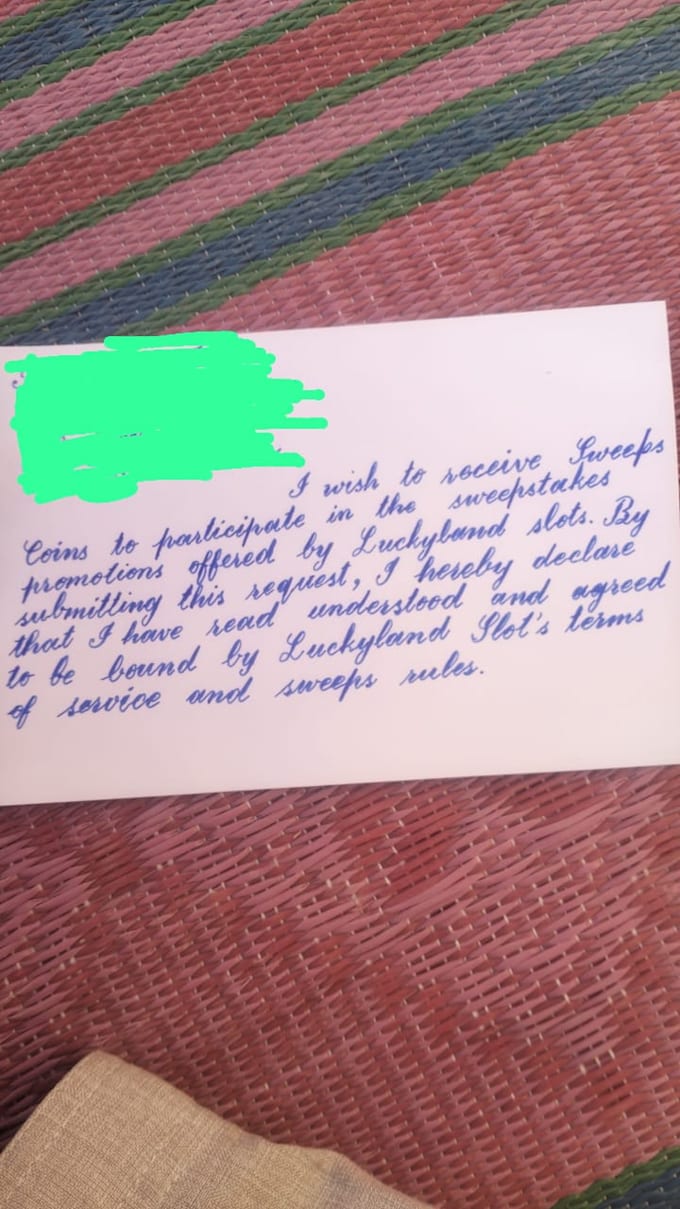 I wish to receive Sweeps
Coins to participate in the sweepstakes
promotions offered by Luckyland slots. By
submitting this request, I hereby declare
that I have read understood and agreed
to be bound by Luckyland Slot's terms
of service and sweeps rules.